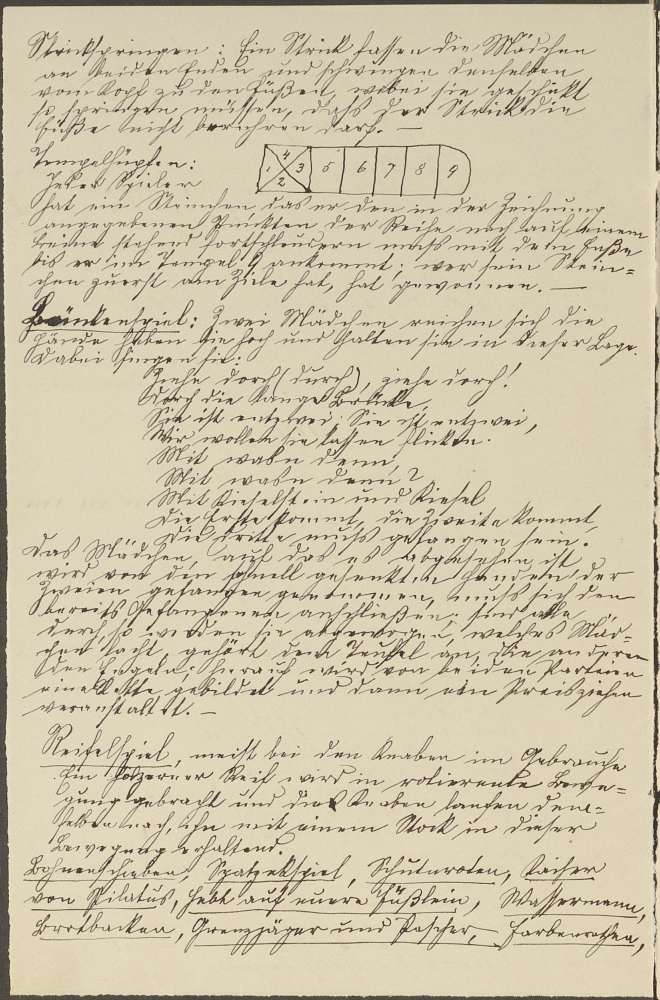 Strickspringen: Ein Strick fassen die Mädchen
an beiden Enden und schwingen denselben
vom Kopf zu den Füßen, wobei sie geschickt
so springen müssen, daß der Strick die
Füße nicht berühren darf. —
Tempelhüpfen:
1 4 3 2 5 6 7 8 9
Jeder Spieler
hat ein Steinchen das er den in der Zeichnung
angegebenen Punkten der Reihe nach auf einem
Beine stehend fortschleudern muß mit dem Fuße
bis er im Tempel 9 ankommt; wer sein Stein-
chen zuerst am Ziele hat, hat gewonnen. —
Brückenspiel: Zwei Mädchen reichen sich die
Hände heben sie hoch und halten sie in dieser Lage.
Dabei singen sie:
Ziehe dorch (durch), ziehe dorch!
Dorch die lange Brücke,
Sie ist entzwei. Sie ist entzwei,
Wir wollen sie lassen flicken.
Mit wasn denn,
Mit wasn denn?
Mit Kieselstein und Kiesel
Die Erste kommt, die Zweite kommt,
Die dritte muß gefangen sein.
Das Mädchen, auf das es abgesehen ist
wird von den schnell gesenkten Händen der
Zweien gefangen genommen, muß sich den
bereits Gefangenen anschließen; sind alle
durch, so werden sie abgewogen, welches Mäd-
chen lacht, gehört dem Teufel an, die anderen
den Engeln; hierauf wird von beiden Parteien
eine Kette gebildet und dann ein Preisziehen
veranstaltet. —
Reifelspiel, meist bei den Knaben im Gebrauche
Ein hölzerner Reif wird in rotierende Bewe-
gung gebracht und die Knaben laufen dem-
selben nach, ihn mit einem Stock in dieser
Bewegung erhaltend.
Bohnenschieben, Spatzekspiel,
von Pilatus, Hebt auf euere Füßlein, Wassermann,
Brotbacken, Grenzjäger und Pascher,